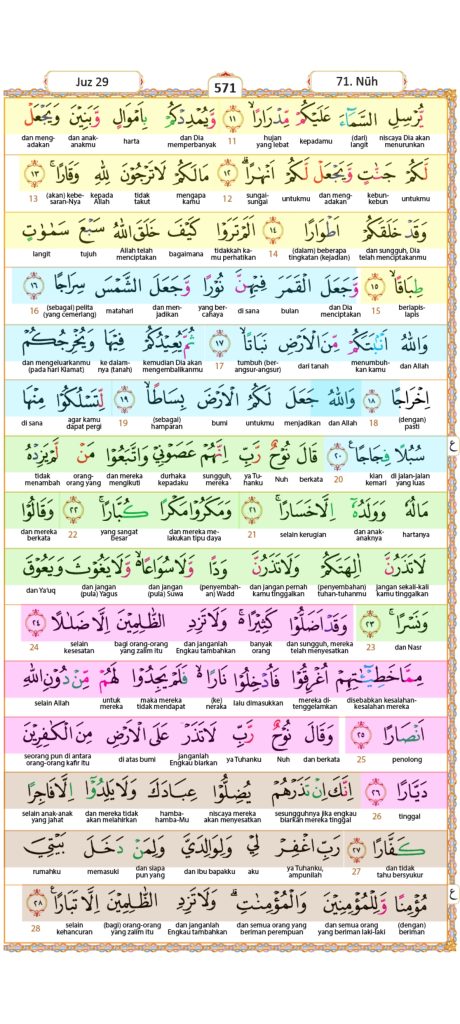 Juz 29 571 71. Nūh
يُّرْسِلِ السَّمَاۤءَ عَلَيْكُمْ مِّدْرَارًاۙ ۝١١ وَّيُمْدِدْكُمْ بِاَمْوَالٍ وَّبَنِيْنَ وَيَجْعَلْ
niscaya Dia akan menurunkan (dari) langit kepadamu hujan yang lebat 11 dan Dia memperbanyak harta dan anak-anakmu dan mengadakan
لَّكُمْ جَنّٰتٍ وَّيَجْعَلْ لَّكُمْ اَنْهٰرًاۗ ۝١٢ مَا لَكُمْ لَا تَرْجُوْنَ لِلّٰهِ وَقَارًاۚ ۝١٣
untukmu kebun-kebun dan mengadakan untukmu sungai-sungai 12 mengapa kamu tidak takut kepada Allah (akan) kebesaran-Nya 13
وَقَدْ خَلَقَكُمْ اَطْوَارًا ۝١٤ اَلَمْ تَرَوْا كَيْفَ خَلَقَ اللّٰهُ سَبْعَ سَمٰوٰتٍ
dan sungguh, Dia telah menciptakanmu (dalam) beberapa tingkatan (kejadian) 14 tidakkah kamu perhatikan bagaimana Allah telah menciptakan tujuh langit
طِبَاقًاۙ ۝١٥ وَّجَعَلَ الْقَمَرَ فِيْهِنَّ نُوْرًا وَّجَعَلَ الشَّمْسَ سِرَاجًا ۝١٦
berlapis-lapis 15 dan Dia menciptakan bulan di sana yang bercahaya dan menjadikan matahari (sebagai) pelita (yang cemerlang) 16
وَاللّٰهُ اَنْۢبَتَكُمْ مِّنَ الْاَرْضِ نَبَاتًاۙ ۝١٧ ثُمَّ يُعِيْدُكُمْ فِيْهَا وَيُخْرِجُكُمْ
dan Allah menumbuhkan kamu dari tanah tumbuh (berangsur-angsur) 17 kemudian Dia akan mengembalikanmu ke dalamnya (tanah) dan mengeluarkanmu (pada hari Kiamat)
اِخْرَاجًا ۝١٨ وَاللّٰهُ جَعَلَ لَكُمُ الْاَرْضَ بِسَاطًاۙ ۝١٩ لِّتَسْلُكُوْا مِنْهَا
(dengan) pasti 18 dan Allah menjadikan untukmu bumi (sebagai) hamparan 19 agar kamu dapat pergi di sana
سُبُلًا فِجَاجًا ۝٢٠ قَالَ نُوْحٌ رَّبِّ اِنَّهُمْ عَصَوْنِيْ وَاتَّبَعُوْا مَنْ لَّمْ يَزِدْهُ ع
di jalan-jalan yang luas kian kemari 20 berkata Nuh ya Tuhanku sungguh, mereka durhaka kepadaku dan mereka mengikuti orang-orang yang tidak menambah
مَالُهٗ وَوَلَدُهٗٓ اِلَّا خَسَارًاۚ ۝٢١ وَمَكَرُوْا مَكْرًا كُبَّارًاۚ ۝٢٢ وَقَالُوْا
hartanya dan anak-anaknya selain kerugian 21 dan mereka melakukan tipu daya yang sangat besar 22 dan mereka berkata
لَا تَذَرُنَّ اٰلِهَتَكُمْ وَلَا تَذَرُنَّ وَدًّا وَّلَا سُوَاعًا ەۙ وَّلَا يَغُوْثَ وَيَعُوْقَ
jangan sekali-kali kamu tinggalkan (penyembahan) tuhan-tuhanmu dan jangan pernah kamu tinggalkan (penyembahan) Wadd dan jangan (pula) Suwa dan jangan (pula) Yagus dan Ya'uq
وَنَسْرًاۚ ۝٢٣ وَقَدْ اَضَلُّوْا كَثِيْرًا ەۚ وَلَا تَزِدِ الظّٰلِمِيْنَ اِلَّا ضَلٰلًا ۝٢٤
dan Nasr 23 dan sungguh, mereka telah menyesatkan banyak orang dan janganlah Engkau tambahkan bagi orang-orang yang zalim itu selain kesesatan 24
مِمَّا خَطِيْۤـٰٔتِهِمْ اُغْرِقُوْا فَاُدْخِلُوْا نَارًا ەۙ فَلَمْ يَجِدُوْا لَهُمْ مِّنْ دُوْنِ اللّٰهِ
disebabkan kesalahan-kesalahan mereka mereka ditenggelamkan lalu dimasukkan (ke) neraka maka mereka tidak mendapat untuk mereka selain Allah
اَنْصَارًا ۝٢٥ وَقَالَ نُوْحٌ رَّبِّ لَا تَذَرْ عَلَى الْاَرْضِ مِنَ الْكٰفِرِيْنَ
penolong 25 dan berkata Nuh ya Tuhanku janganlah Engkau biarkan di atas bumi seorang pun di antara orang-orang kafir itu
دَيَّارًا ۝٢٦ اِنَّكَ اِنْ تَذَرْهُمْ يُضِلُّوْا عِبَادَكَ وَلَا يَلِدُوْٓا اِلَّا فَاجِرًا
tinggal 26 sesungguhnya jika engkau biarkan mereka tinggal niscaya mereka akan menyesatkan hamba-hamba-Mu dan mereka tidak akan melahirkan selain anak-anak yang jahat
كَفَّارًا ۝٢٧ رَبِّ اغْفِرْ لِيْ وَلِوَالِدَيَّ وَلِمَنْ دَخَلَ بَيْتِيَ
dan tidak tahu bersyukur 27 ya Tuhanku, ampunilah aku dan ibu bapakku dan siapa pun yang memasuki rumahku
مُؤْمِنًا وَّلِلْمُؤْمِنِيْنَ وَالْمُؤْمِنٰتِۗ وَلَا تَزِدِ الظّٰلِمِيْنَ اِلَّا تَبَارًا ۝٢٨ ع
(dengan) beriman dan semua orang yang beriman laki-laki dan semua orang yang beriman perempuan dan janganlah Engkau tambahkan (bagi) orang-orang yang zalim itu selain kehancuran 28